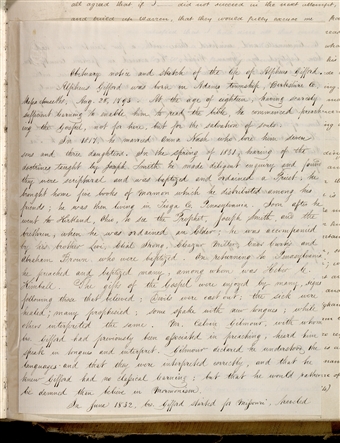 all agreed that if I did not succeed in the next attempt,
that they would
Obituary notice and Sketch of the life of Alpheus Gifford.
Alpheus Gifford was born in Adams township, Berkshire Co.
Massachusetts, Aug. 28, 1793. At the age of eighteen, having scarcely
sufficient learning to enable him to read the bible, he commenced preach-
ing the Gospel, not for hire, but for the salvation of souls.
In 1817 he married Anna Nash who bore him seven
sons and three daughters. In the spring of 1831, hearing of the
doctrines taught by Joseph Smith he made diligent enquiry and found
they were scriptural and was baptized and ordained a Priest. He
brought home five books of Mormon which he distributed among his
friends; he was then living in Tioga Co. Pennsylvania. Soon after he
went to Kirtland, Ohio, to see the Prophet, Joseph Smith and the
brethren, when he was ordained an Elder; he was accompanied
by his brother Levi, Elial Strong, Eleazer Miller, Enos Curtis and
Abraham Brown who were baptized. On returning to Pennsylvania
he preached and baptized many, among whom was Heber C.
Kimball. The gifts of the Gospel were enjoyed by many, signs
following those that believed; Devils were cast out; the sick were
healed; many prophesied; some spake with new tongues; while
others interpreted the same. Mr. Calvin Gilmour, with whom
br Gifford had previously been associated in preaching, heard him
speak in tongues and interpret. Gilmour declared he understood the
languages and that they were interpreted correctly, and that he
knew Gifford had no classical learning; but that he would rather
be damned than believe in Mormonism.
In June 1832, br Gifford started for Missouri,